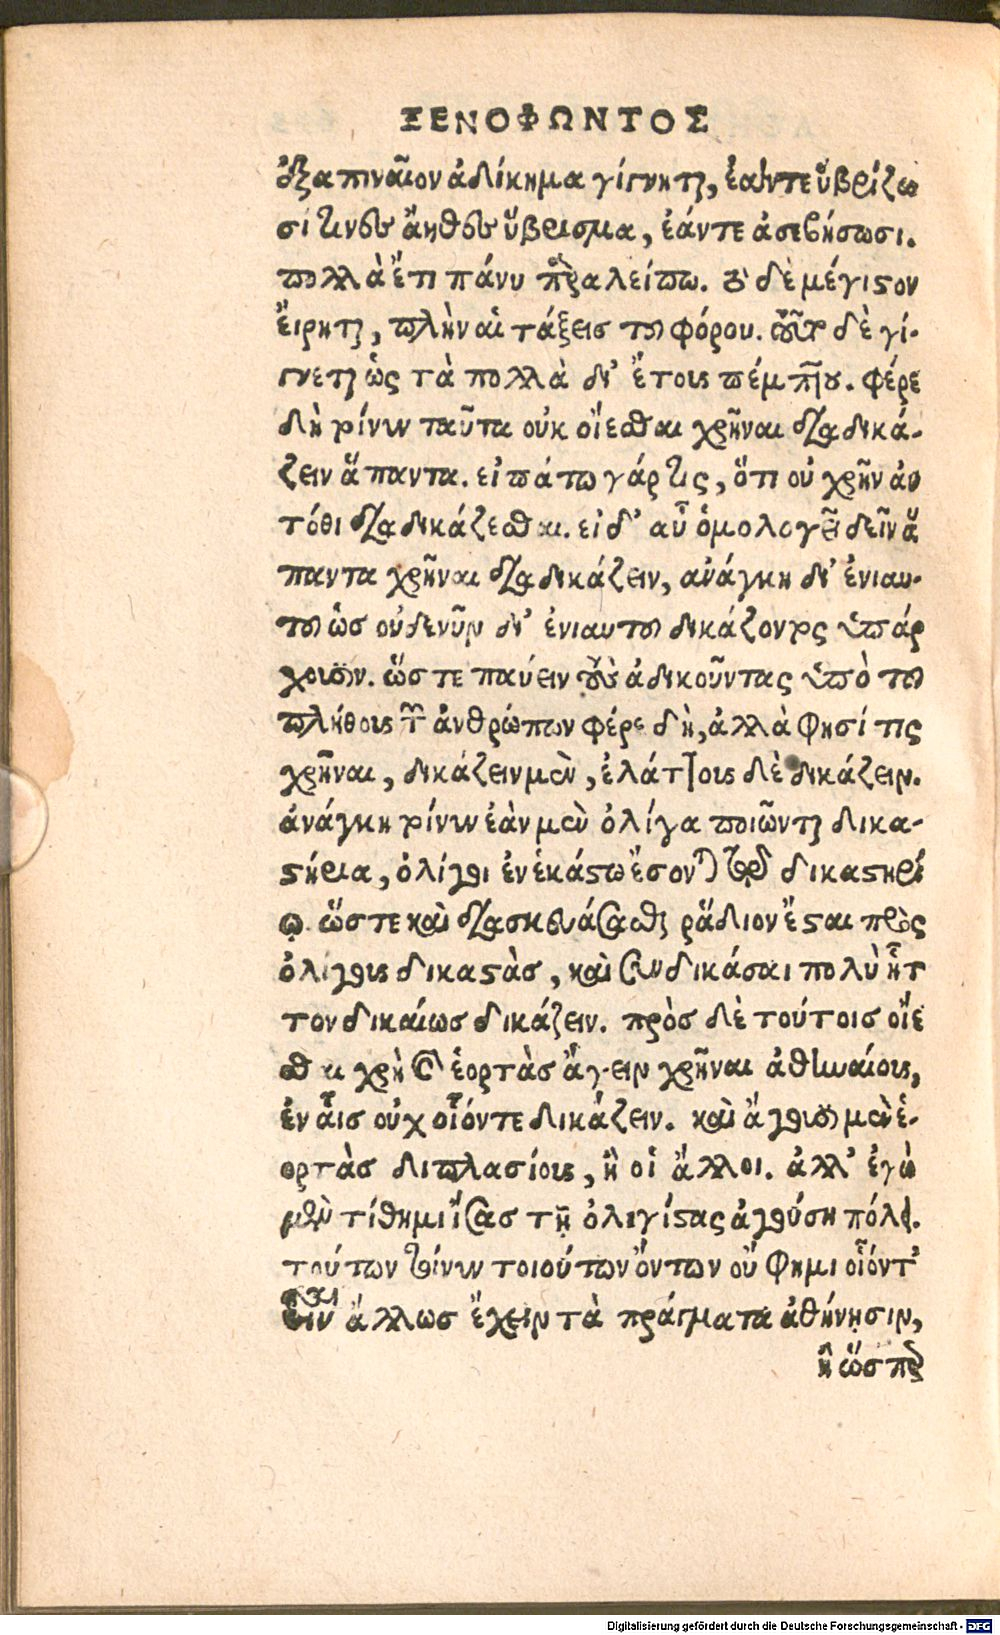 ΞΕΝΟΦΩΝΤΟΣ
ἐξαπιναῖον ἀδίκημα γίγνηται, ἐάντε ὑβρίζω
σί τινες ἄηθες ὕβρισμα, ἐάντε ἀσεβήσωσι.
πολλὰ ἔτι πάνυ παραλείπω. τὸ δὲ μέγιστον
εἴρηται, πλὴν αἱ τάξεις τοῦ φόρου. τοῦτο δὲ γί-
γνεται ὡς τὰ πολλὰ δι' ἔτους πέμπτου. φέρε
δὴ τοίνυν ταῦτα οὐκ οἴεσθαι χρῆναι διαδικά-
ζειν ἅπαντα. εἰπάτω γάρ τις, ὅτι οὐ χρῆν αὐ
τόθι διαδικάζεσθαι. εἰ δ' αὖ ὁμολογεῖ δεῖν ἅ
παντα χρῆναι διαδικάζειν, ἀνάγκη δι' ἐνιαυ-
τοῦ ὡς οὐδὲ νῦν δι' ἐνιαυτοῦ δικάζοντες ὑπάρ
χουσιν. ὥστε παύειν τοὺς ἀδικοῦντας ὑπὸ τοῦ
πλήθους τῶν ἀνθρώπων φέρε δὴ, ἀλλὰ φησί τις
χρῆναι, δικάζειν μὲν, ἐλάττους δὲ δικάζειν.
ἀνάγκη τοίνυν ἐὰν μὲν ὀλίγα ποιῶνται δικα-
στήρια, ὀλίγοι ἐν ἑκάστῳ ἔσονται τῷ δικαστηρί
ῳ. ὥστε καὶ διασκευάσασθαι ῥᾴδιον ἔσται πρὸς
ὀλίγους δικαστὰς, καὶ συνδικάσαι πολὺ ἧτ
τον δικαίως δικάζειν. πρὸς δὲ τούτοις οἴε
σθαι χρὴ καὶ ἑορτὰς ἄγειν χρῆναι ἀθηναίους,
ἐν αἷς οὐχ οἷόντε δικάζειν. καὶ ἄγουσι μὲν ἑ-
ορτὰς διπλασίους, ἢ οἱ ἄλλοι. ἀλλ' ἐγὼ
μὲν τίθημι ἴσας τῇ ὀλιγίστας ἀγούσῃ πόλει.
τούτων τοίνυν τοιούτων ὄντων οὔ φημι οἷόντ'
εἶναι ἄλλως ἔχειν τὰ πράγματα ἀθήνησιν,
ἢ ὥσπερ
Digitalisierung gefördert durch die Deutsche Forschungsgemeinschaft - DFG